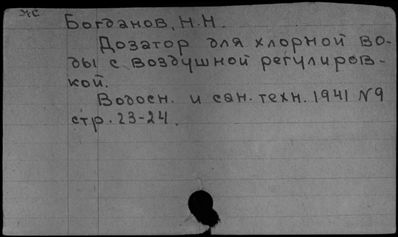 жс
Богданов, Н.Н.
Дозатор для хлорной во-
ды с воздушной регулиров-
кой.
Водосн. и сан. техн. 1941 №9
стр. 23-24.